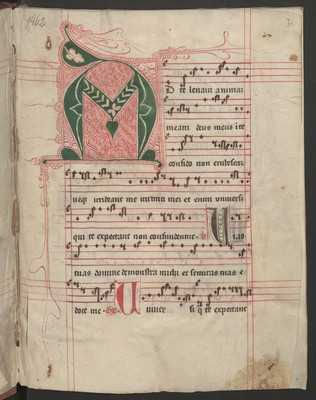 1462
D te levavi animaz
meam deus meus i te
confido non erubescaz
neqz irrideant me inimici mei et enim universi
qui te expectant non confundentur Vias
tuas domine demonstra michi et semitas tuas e
doce me Univer si q te expectant